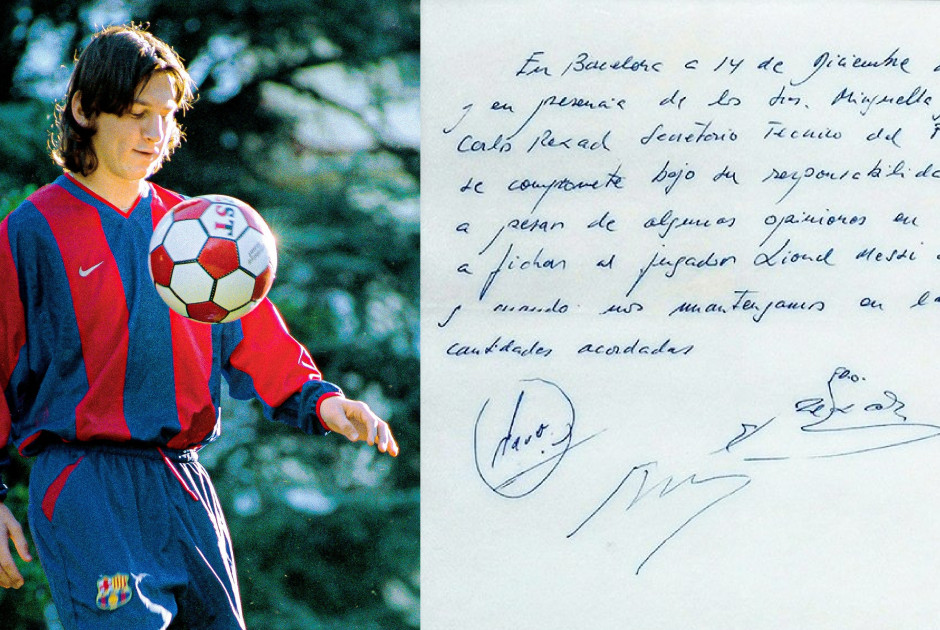 En Barcelona a 14 de Diciembre d
y en presencia de los Srs. Minguella y
Carlos Rexach Secretario Tecnico del F
se compromete bajo su responsabilida
a pesar de algunas opiniones en
a fichar al jugador Lionel Messi
y cuando nos mantengamos en la
cantidades acordadas